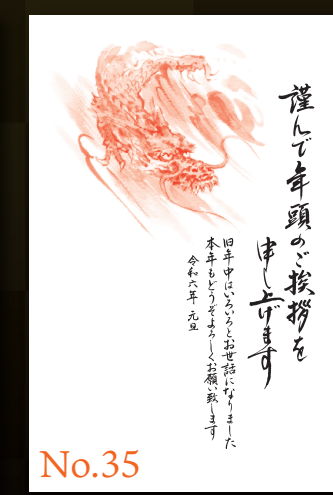 謹んで年頭のご挨拶を
申し上げます
旧年中はいろいろとお世話になりました
本年もどうぞよろしくお願い致します
令和六年 元旦
No.35